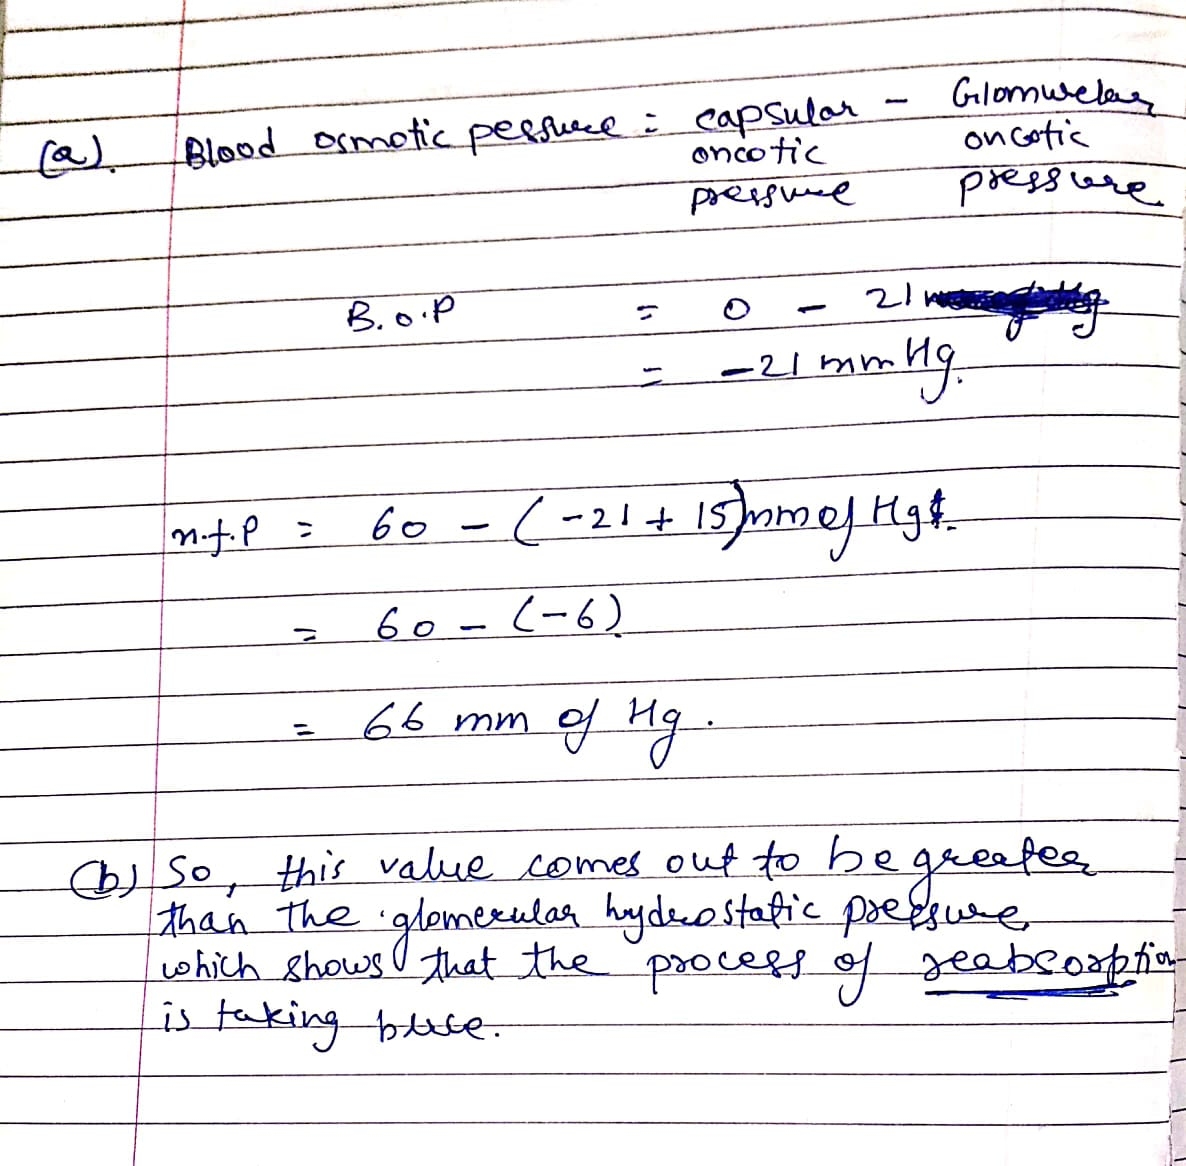 (a). Blood osmotic pessure = capsular - Glomurelar
oncotic oncotic
pressure pressure
B.O.P = 0 - 21
= -21 mmHg.
n.f.P = 60 - (-21 + 15)mm of Hg
= 60 - (-6)
= 66 mm of Hg.
(b) So, this value comes out to be greater
than the glomerular hydrostatic pressure
which shows that the process of reabsorption
is taking